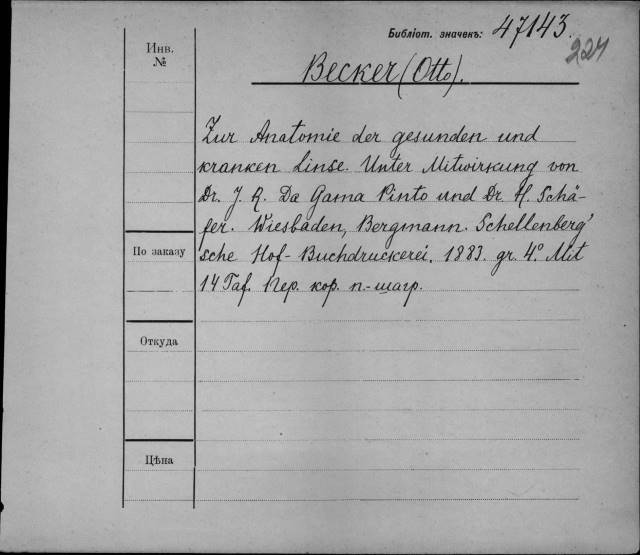 Библіот. значекъ: 47143.
224
Инв.
№
Becker (Otto).
Zur Anatomie der gesunden und
kranken Linse. Unter Mitwirkung von
Dr. J. R. Da Gama Pinto und Dr. H. Schä-
fer. Wiesbaden, Bergmann. Schellenberg'
sche Hof-Buchdruckerei. 1883. gr. 4° Mit
14 Taf. Пер. кор. п.-шагр.
По заказу
Откуда
Цѣна